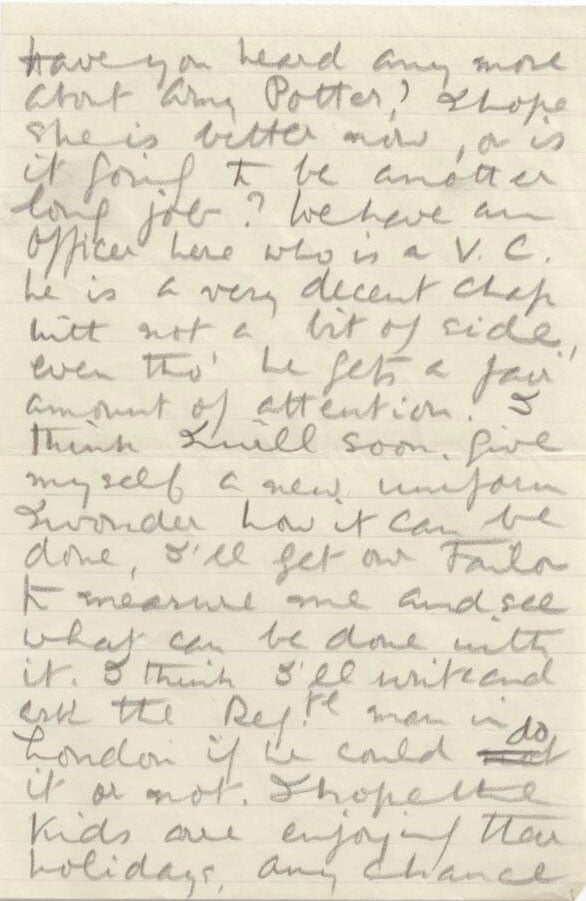 Have you heard any more
about Amy Potter? I hope
she is better now, or is
it going to be another
long job? We have an
Officer here who is a V. C.
he is a very decent chap
with not a bit of side,
even tho' he gets a fair
amount of attention. I
think I will soon give
myself a new uniform
I wonder how it can be
done, I'll get our Tailor
to measure me and see
what can be done with
it. I think I'll write and
ask the Reg.tl man in
London if he could do
it or not. I hope the
kids are enjoying their
holidays, any chance